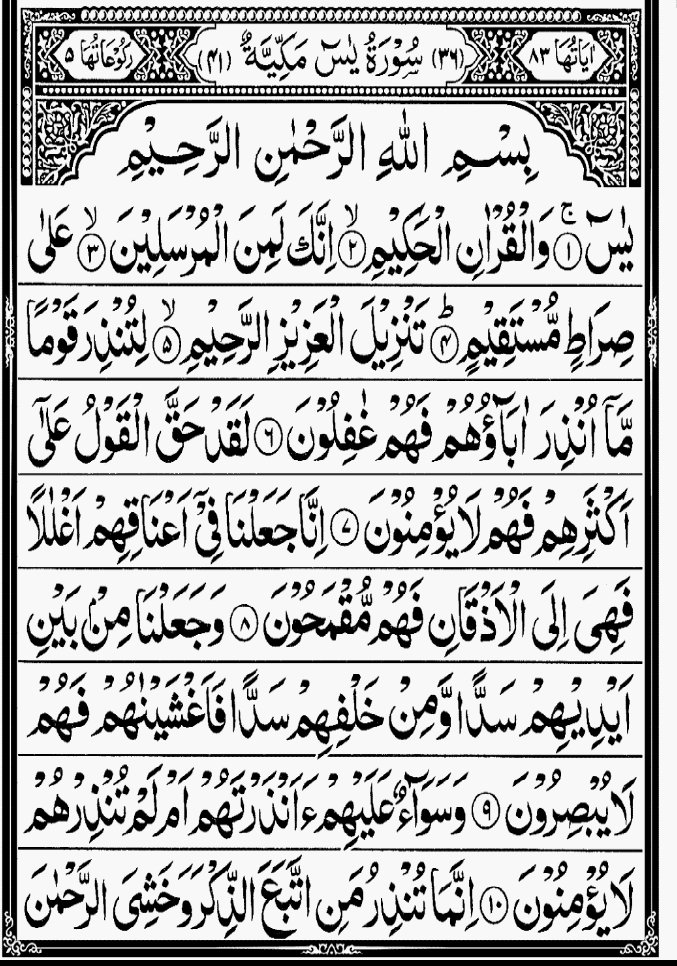 اٰيَاتُهَا ٨٣ (٣٦) سُوْرَةُ يٰسٓ مَكِّيَّةٌ (٤١) رُكُوْعَاتُهَا ٥
بِسْمِ اللّٰهِ الرَّحْمٰنِ الرَّحِيْمِ
يٰسٓ ۚ ﴿١﴾ وَالْقُرْاٰنِ الْحَكِيْمِ ۙ ﴿٢﴾ اِنَّكَ لَمِنَ الْمُرْسَلِيْنَ ۙ ﴿٣﴾ عَلٰى
صِرَاطٍ مُّسْتَقِيْمٍ ؕ ﴿۴﴾ تَنْزِيْلَ الْعَزِيْزِ الرَّحِيْمِ ۙ ﴿۵﴾ لِتُنْذِرَ قَوْمًا
مَّاۤ اُنْذِرَ اٰبَآؤُهُمْ فَهُمْ غٰفِلُوْنَ ﴿۶﴾ لَقَدْ حَقَّ الْقَوْلُ عَلٰٓى
اَكْثَرِهِمْ فَهُمْ لَا يُؤْمِنُوْنَ ﴿٧﴾ اِنَّا جَعَلْنَا فِيْۤ اَعْنَاقِهِمْ اَغْلٰلًا
فَهِيَ اِلَى الْاَذْقَانِ فَهُمْ مُّقْمَحُوْنَ ﴿٨﴾ وَجَعَلْنَا مِنْۢ بَيْنِ
اَيْدِيْهِمْ سَدًّا وَّمِنْ خَلْفِهِمْ سَدًّا فَاَغْشَيْنٰهُمْ فَهُمْ
لَا يُبْصِرُوْنَ ﴿٩﴾ وَسَوَآءٌ عَلَيْهِمْ ءَاَنْذَرْتَهُمْ اَمْ لَمْ تُنْذِرْهُمْ
لَا يُؤْمِنُوْنَ ﴿١٠﴾ اِنَّمَا تُنْذِرُ مَنِ اتَّبَعَ الذِّكْرَ وَخَشِيَ الرَّحْمٰنَ